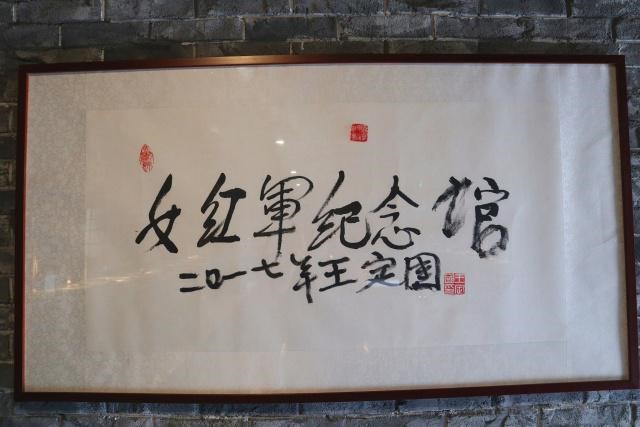 女红軍纪念馆
二〇一七年王定国